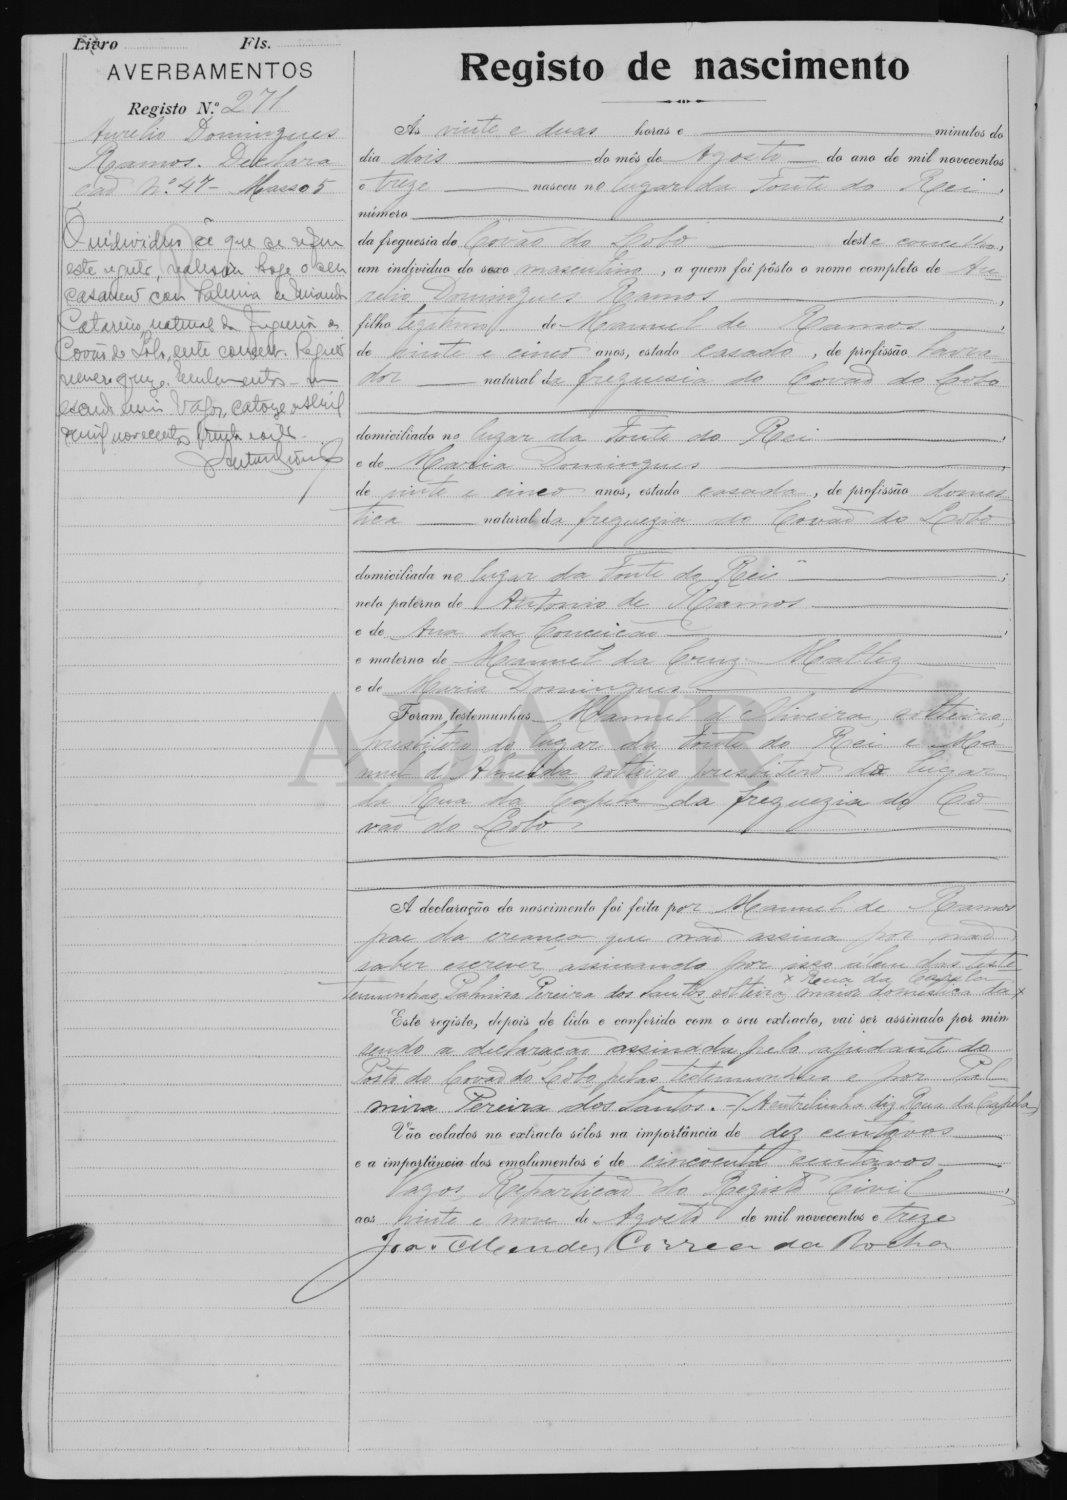 Livro Fls.
AVERBAMENTOS
Registo N.º 271
Aurelio Domingues
Ramos. Declara
ção Nº 47 - Masso 5
O individuo a que se refere
este registo, realisou hoje o seu
casamento com de Miranda
Catarino, natural da freguesia de
Covão do Lobo, deste concelho. Registo
Emolumentos - um
escudo. Vagos, catorze Abril
de mil novecentos trinta e
Registo de nascimento
Às vinte e duas horas e minutos do
dia dois do mês de Agosto do ano de mil novecentos
e treze nasceu no lugar da Fonte do Rei,
número
da freguesia do Covão do Lobo deste concelho,
um individuo do sexo masculino, a quem foi pôsto o nome completo de Au-
relio Domingues Ramos,
filho legitimo de Manuel de Ramos,
de vinte e cinco anos, estado casado, de profissão lavra-
dor natural da freguesia do Covão do Lobo
domiciliado no lugar da Fonte do Rei
e de Maria Domingues,
de vinte e cinco anos, estado casada, de profissão domes-
tica natural da freguezia do Covão do Lobo
domiciliada no lugar da Fonte do Rei;
neto paterno de Antonio de Ramos
e de Ana da Conceição,
e materno de Manuel da Cruz Mattez
e de Maria Domingues
Foram testemunhas Manuel d'Oliveira, solteiro,
presbitero do lugar da Fonte do Rei e Ma-
nuel d'Almeida solteiro presbitero do lugar
da Rua da Capela da freguezia do Co-
vão do Lobo
A declaração do nascimento foi feita por Manuel de Ramos
pae da creança que não assina por não
saber escrever, assinando por isso álem das teste
× Rua da Capela
temunhas Palmira Pereira dos Santos solteira maior domestica da ×
Este registo, depois de lido e conferido com o seu extracto, vai ser assinado por mim
sendo a declaração assinada pelo ajudante do
Posto do Covão do Lobo pelas testemunhas e por Pal
mira Pereira dos Santos. - (A entrelinha diz Rua da Capela)
Vão colados no extracto sêlos na importância de dez centavos
e a importância dos emolumentos é de cincoenta centavos
Vagos, Repartição do Registo Civil,
aos vinte e nove de Agosto de mil novecentos e treze
João Mendes Correa da Rocha
ADAVR